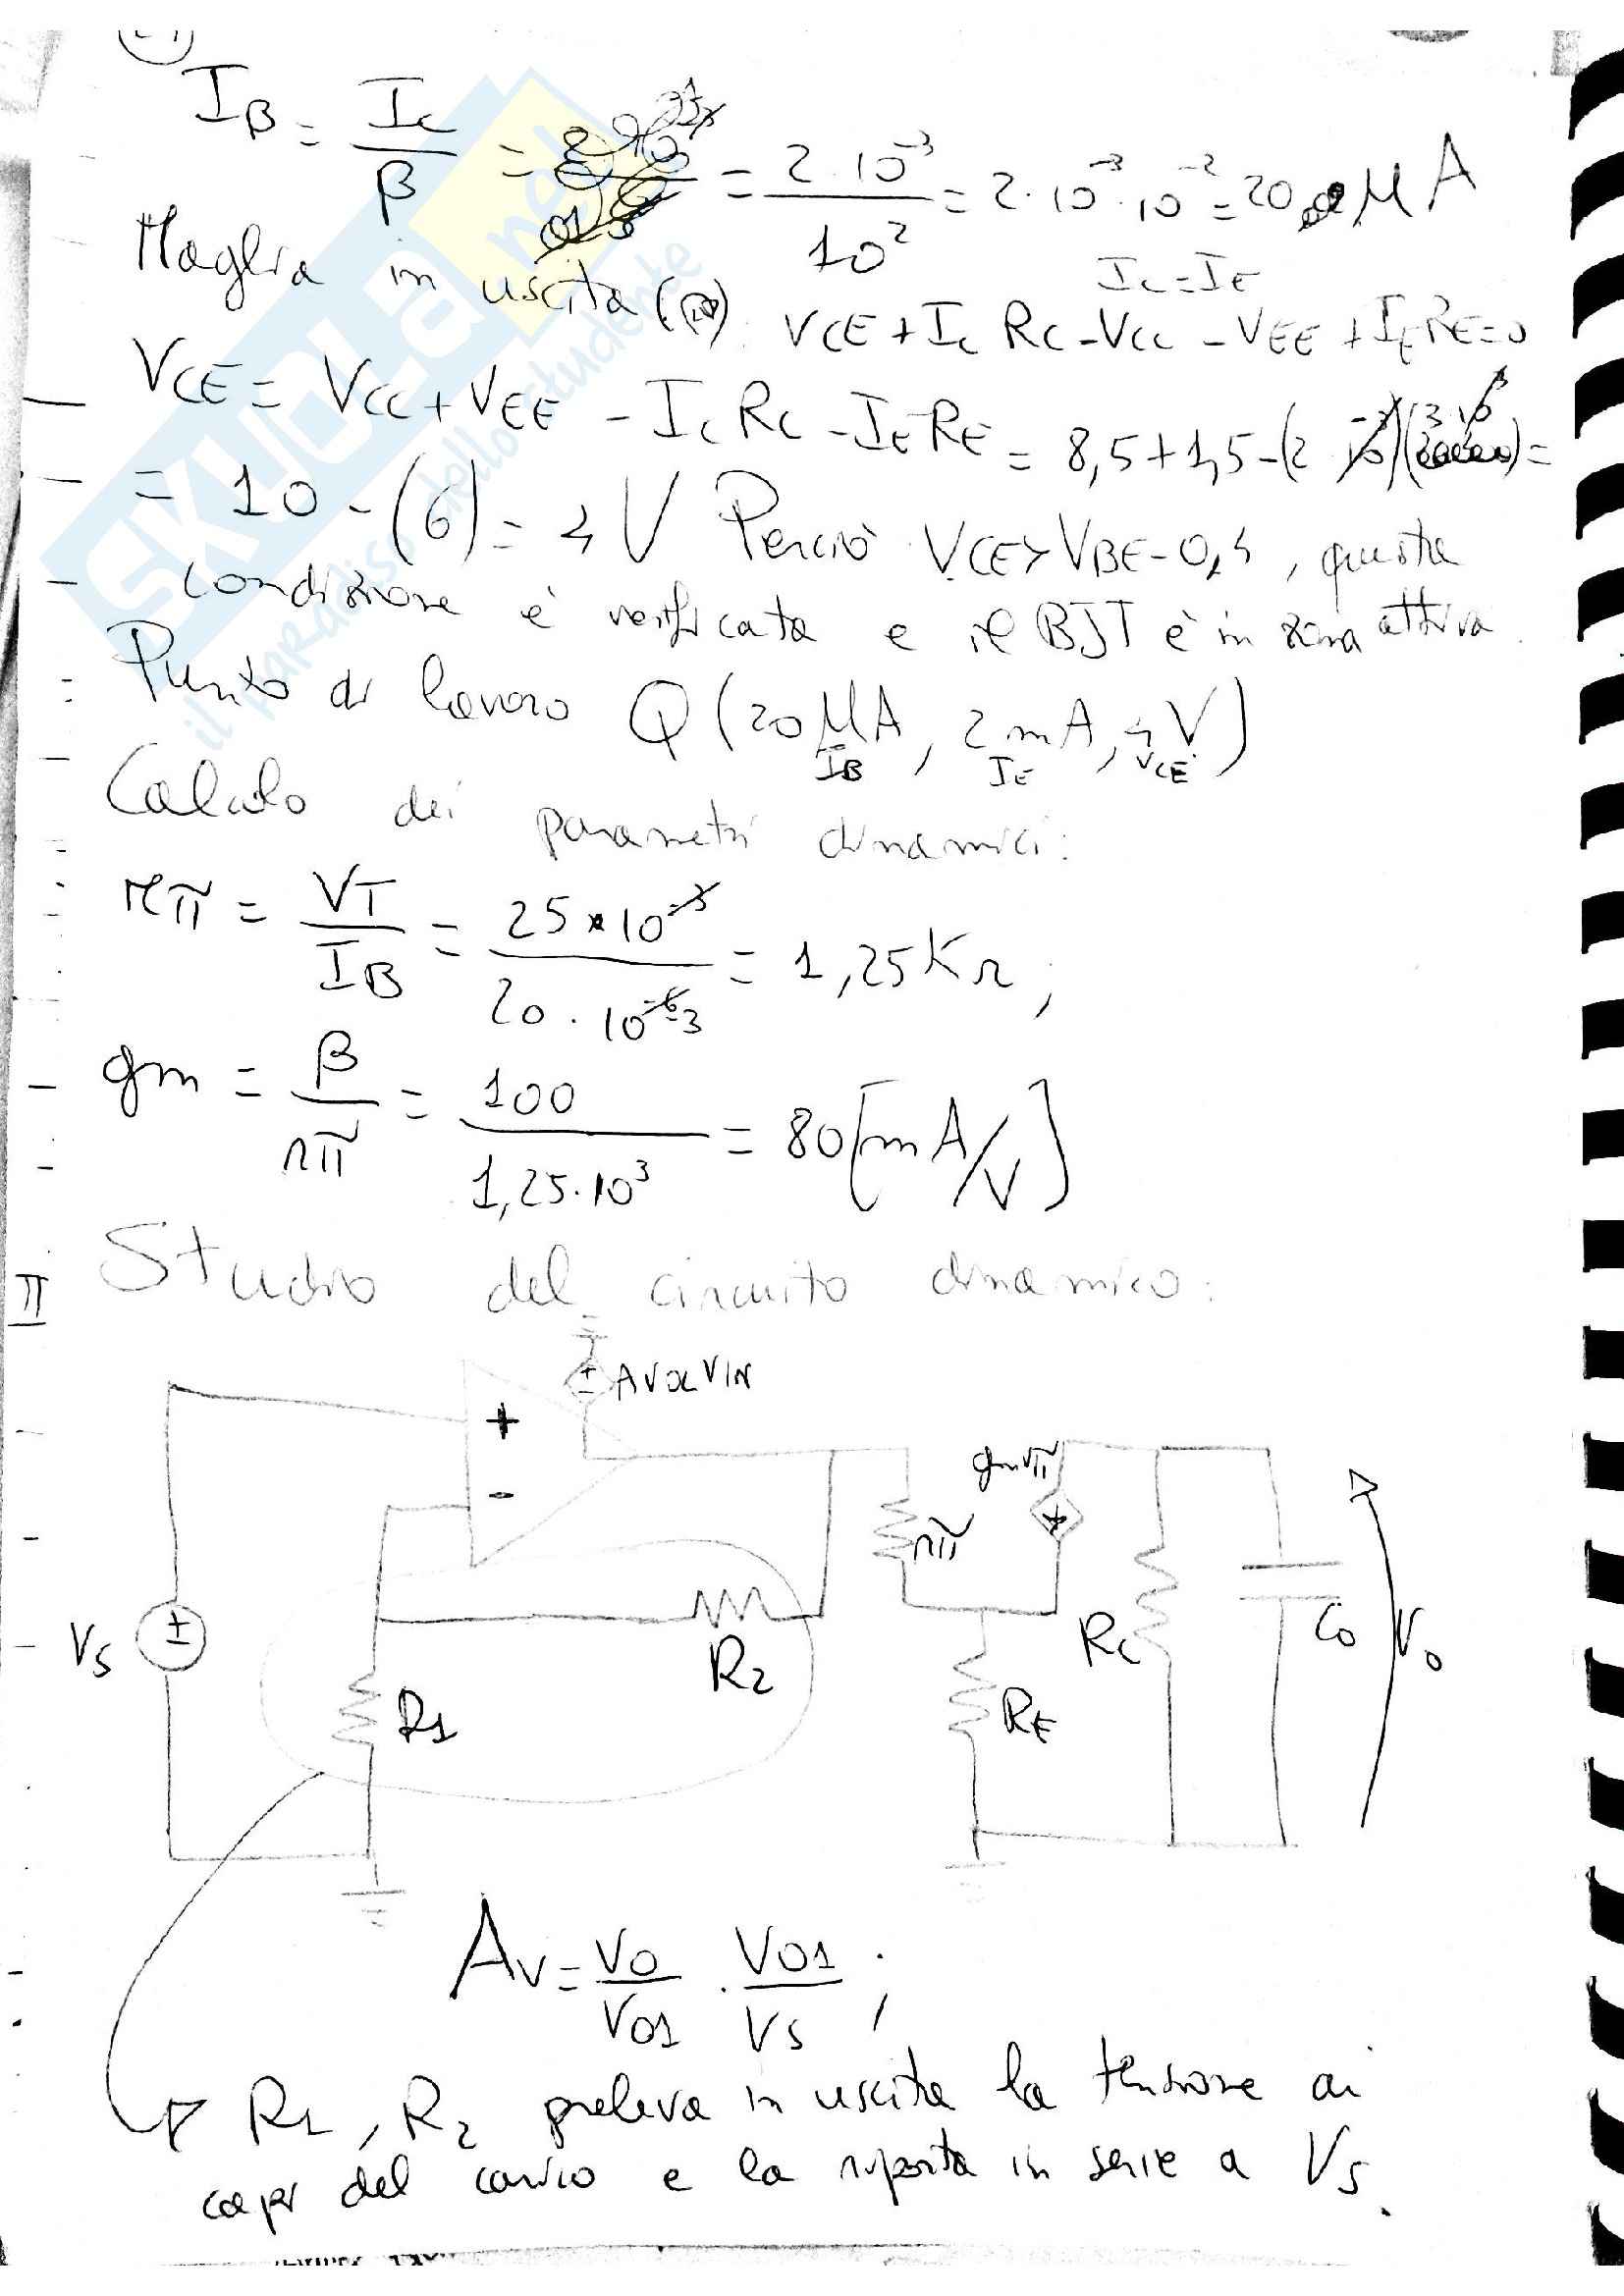 I_B = I_C/β = = 2·10^-3/10^2 = 2·10^-3·10^-2 = 20 μA
Maglia in uscita I_C=I_E
VCE + I_C R_C - VCC - VEE + I_E R_E = 0
VCE = VCC + VEE - I_C R_C - I_E R_E = 8,5+1,5-(2 10^-3)(3 10^3) =
= 10 - (6) = 4 V Perciò VCE > VBE-0,4, questa
condizione è verificata e il BJT è in zona attiva.
Punto di lavoro Q (20 μA, 2 mA, 4 V)
IB IE VCE
Calcolo dei parametri dinamici:
rπ = VT/IB = 25*10^-3/20·10^-6 3 = 1,25 KΩ;
gm = β/rπ = 100/1,25·10^3 = 80 [mA/V]
II Studio del circuito dinamico:
± AVOL VIN
+
gmvπ
-
rπ
VS ±
R2
RC
C0
V0
R1
RE
Av = V0/V01 · V01/VS ;
R1, R2 preleva in uscita la tensione ai
capi del carico e la riporta in serie a VS.
SKUOLA.net
il paradiso dello studente